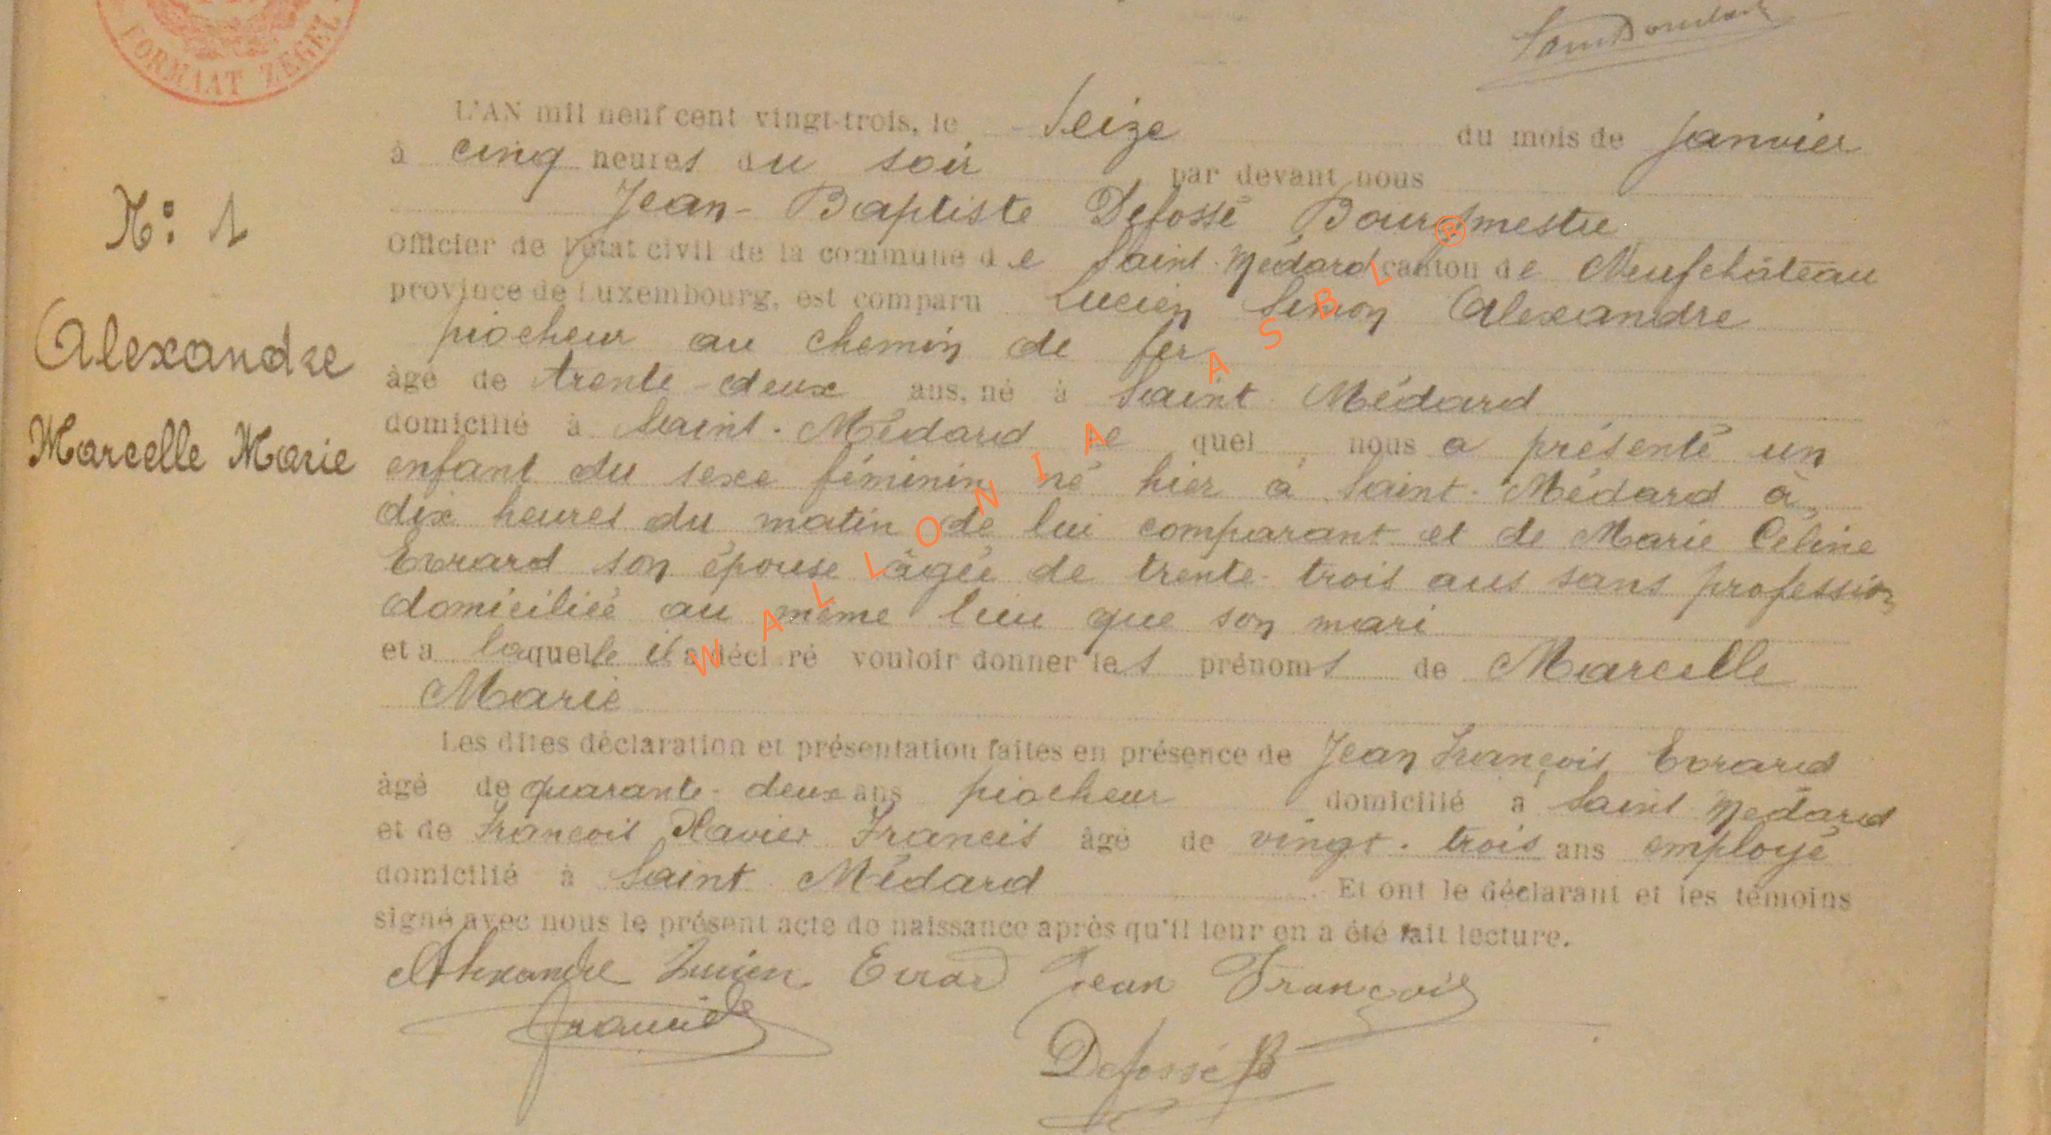 FORMAAT ZEGEL
L'AN mil neuf cent vingt-trois, le Seize du mois de Janvier
à cinq heures du soir par devant nous
Jean-Baptiste Defossé Bourgmestre
Officier de l'état civil de la commune de Saint-Médard canton de Neufchâteau
province de Luxembourg, est comparu Lucien Simon Alexandre
piocheur au chemin de fer
âgé de trente-deux ans, né à Saint-Médard
domicilié à Saint-Médard le quel nous a présenté un
enfant du sexe féminin né hier à Saint-Médard à
dix heures du matin de lui comparant et de Marie Céline
Evrard son épouse âgée de trente-trois ans sans profession
domiciliée au même lieu que son mari
et a laquelle il a déclaré vouloir donner les prénoms de Marcelle
Marie
Les dites déclaration et présentation faites en présence de Jean François Evrard
âgé de quarante-deux ans piocheur domicilié à Saint Médard
et de François Xavier Francis âgé de vingt-trois ans employé
domicilié à Saint Médard . Et ont le déclarant et les témoins
signé avec nous le présent acte de naissance après qu'il leur en a été fait lecture.
Alexandre Lucien Evrard Jean François
Defossé JB
N: 1
Alexandre
Marcelle Marie
WALLONIA ASBL ®